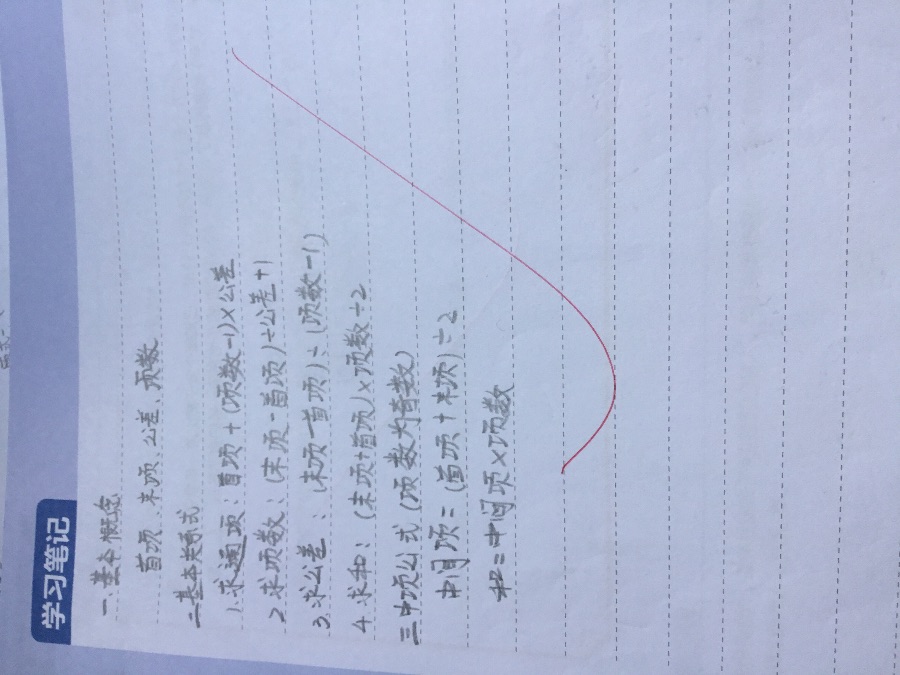 学习笔记
一.基本概念
首项、末项、公差、项数
二.基本关系式
1.求通项:首项+(项数-1)×公差
2.求项数:(末项-首项)÷公差+1
3.求公差:(末项-首项)÷(项数-1)
4.求和:(末项+首项)×项数÷2
三中项公式(项数为奇数)
中间项=(首项+末项)÷2
和=中间项×项数